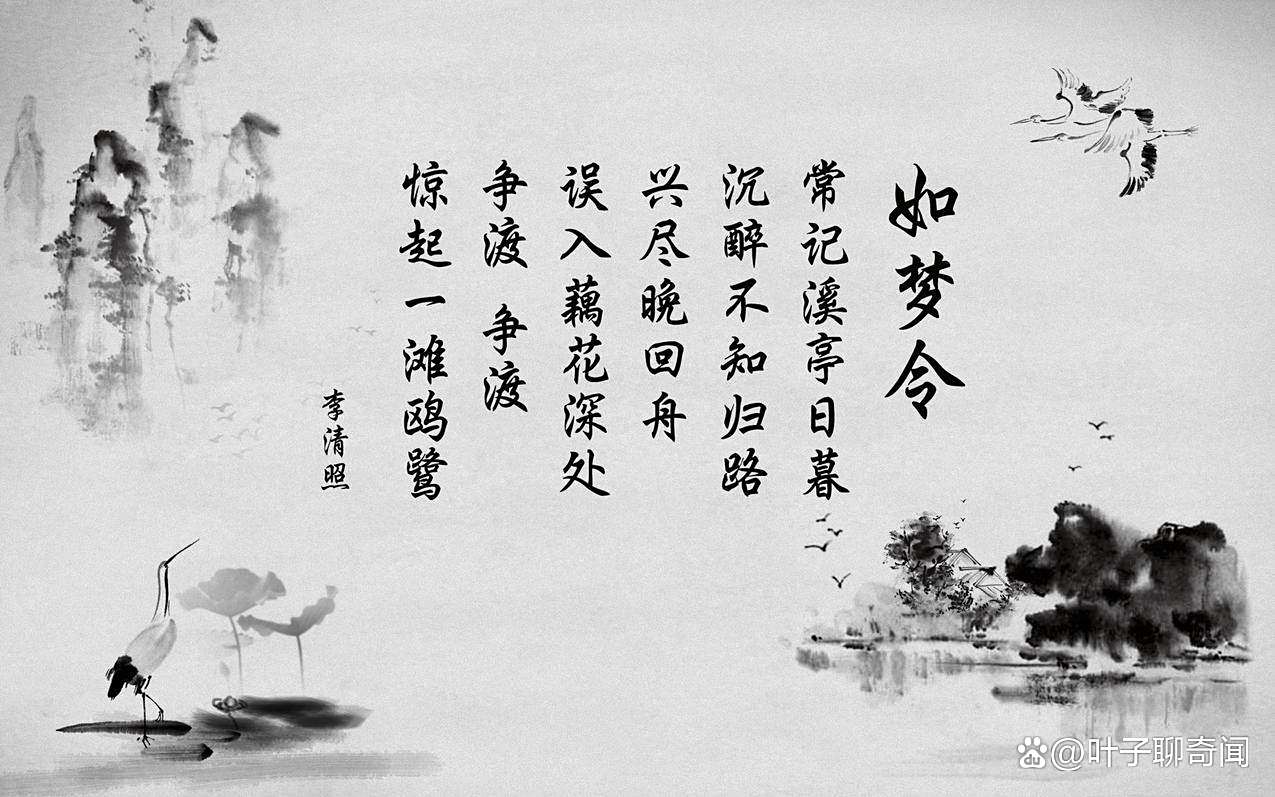 如梦令
常记溪亭日暮
沉醉不知归路
兴尽晚回舟
误入藕花深处
争渡 争渡
惊起一滩鸥鹭
李清照
@叶子聊奇闻